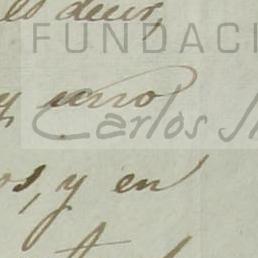 es decir,
FUNDACI
y uno
Carlos
os, y en